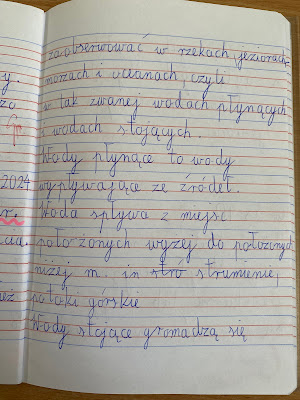 zaobserwować w rzekach, jeziorach,
morzach i oceanach, czyli
w tak zwanej wodach płynących
i wodach stojących.
Wody płynące to wody
2024 wypływające ze źródeł.
r. Woda spływa z miejsc
położonych wyżej do położonych
niżej m. in stró strumienie,
potoki górskie
Wody stojące gromadzą się